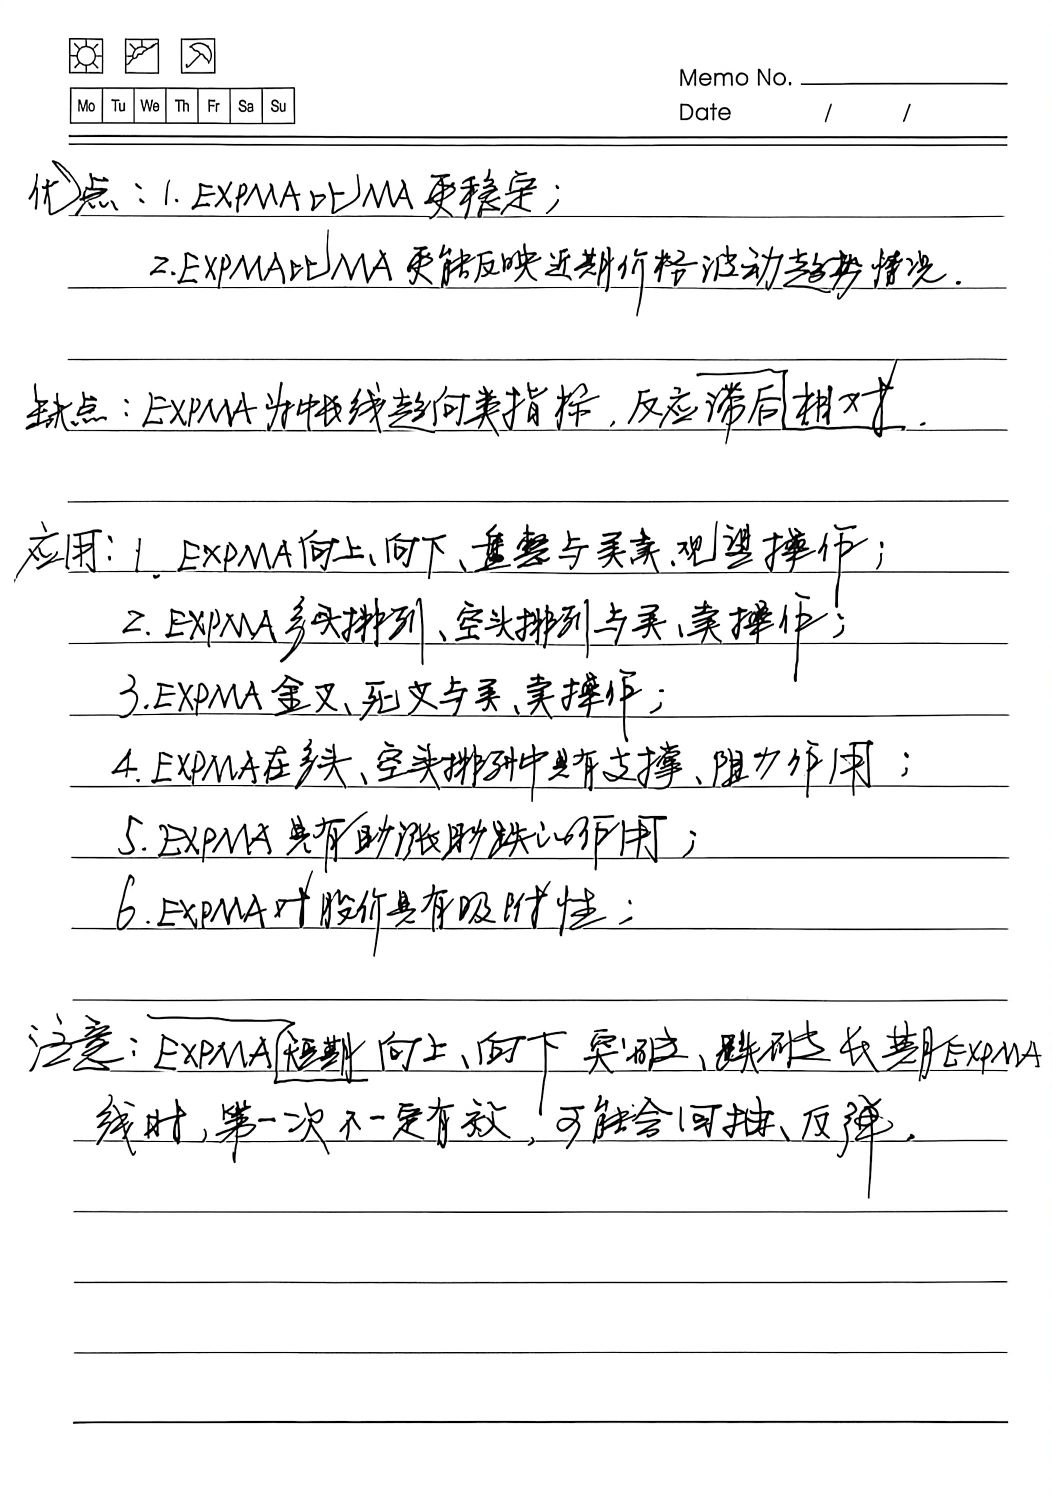 Mo Tu We Th Fr Sa Su
Memo No.
Date / /
优点：1. EXPMA比MA更稳定；
2. EXPMA比MA更能反映近期价格波动趋势情况.
缺点：EXPMA为中长线趋向类指标，反应滞后相对.
应用：1. EXPMA向上、向下、盘整与买卖、观望操作；
2. EXPMA多头排列、空头排列与买、卖操作；
3. EXPMA金叉、死叉与买、卖操作；
4. EXPMA在多头、空头排列中具有支撑、阻力作用；
5. EXPMA具有助涨助跌的作用；
6. EXPMA对股价具有吸附性；
注意：EXPMA短期向上、向下突破、跌破长期EXPMA
线时，第一次不一定有效，可能会回抽、反弹.